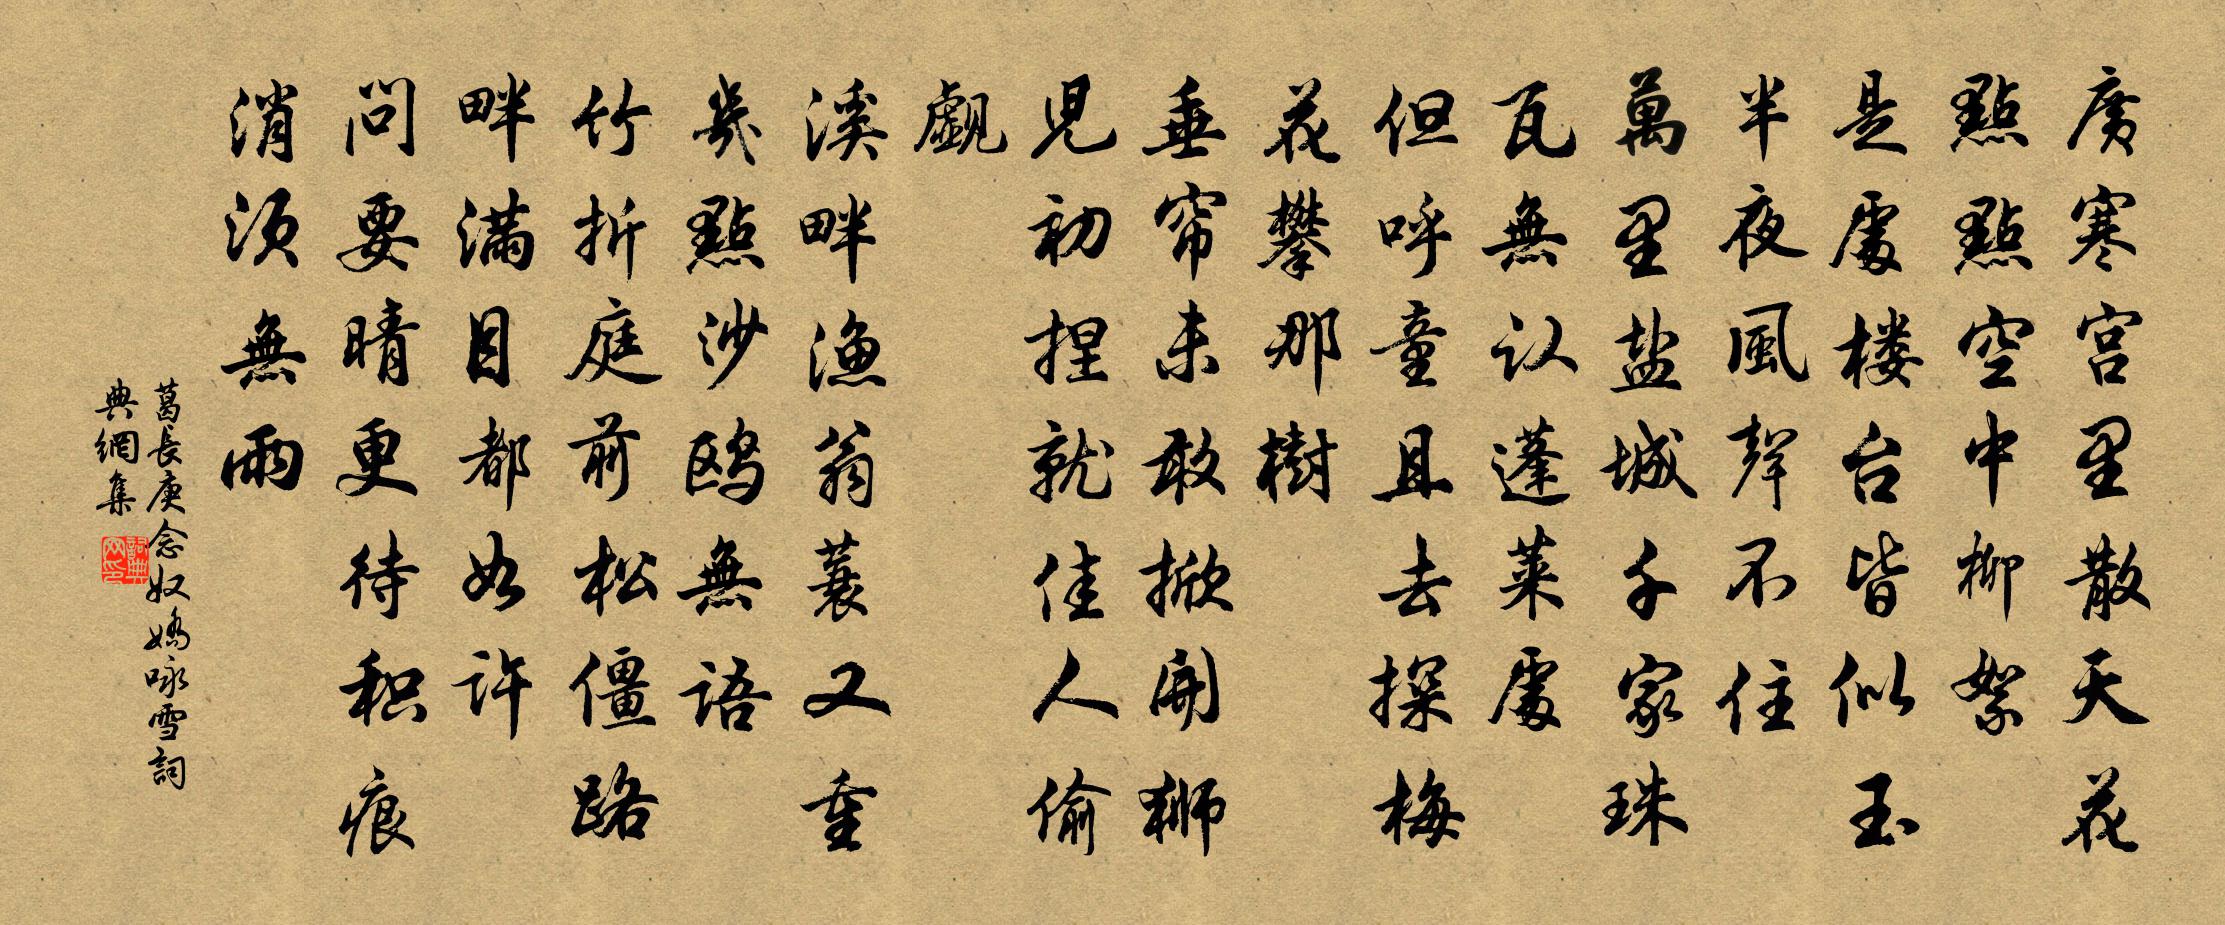 廣寒宮里散天花
點點空中柳絮
是處楼台皆似玉
半夜風聲不住
萬里盐城千家珠
瓦無认蓬萊處
但呼童且去探梅
花攀那樹
垂帘未敢掀開狮
児初捏就佳人偷
觑
溪畔漁翁蓑又重
幾點沙鸥無語
竹折庭前松僵路
畔满目都如許
問要晴更待积痕
消须無雨
葛長庚念奴嬌咏雪詞
典網集
詞典网印